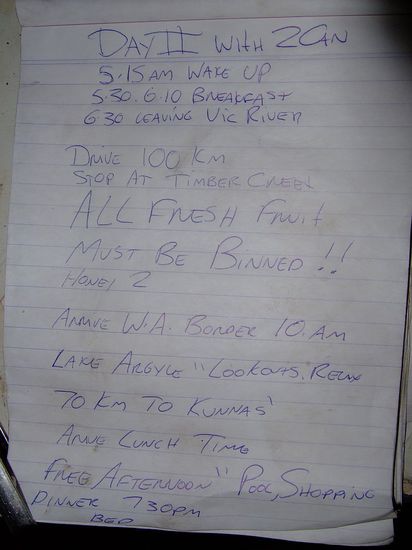 DAY II WITH ZAN
5.15 AM WAKE UP
5.30. 6.10 BREAKFAST
6 30 LEAVING VIC RIVER
DRIVE 100 KM
STOP AT TIMBER CREEK
ALL FRESH FRUIT
MUST BE BINNED !!
HONEY 2
ARRIVE W.A. BORDER 10. AM
LAKE ARGYLE " LOOKOUTS. RELAX
70 KM TO KUNNAS'
ARRIVE LUNCH TIME
FREE AFTERNOON " POOL, SHOPPING
DINNER 730PM
BED